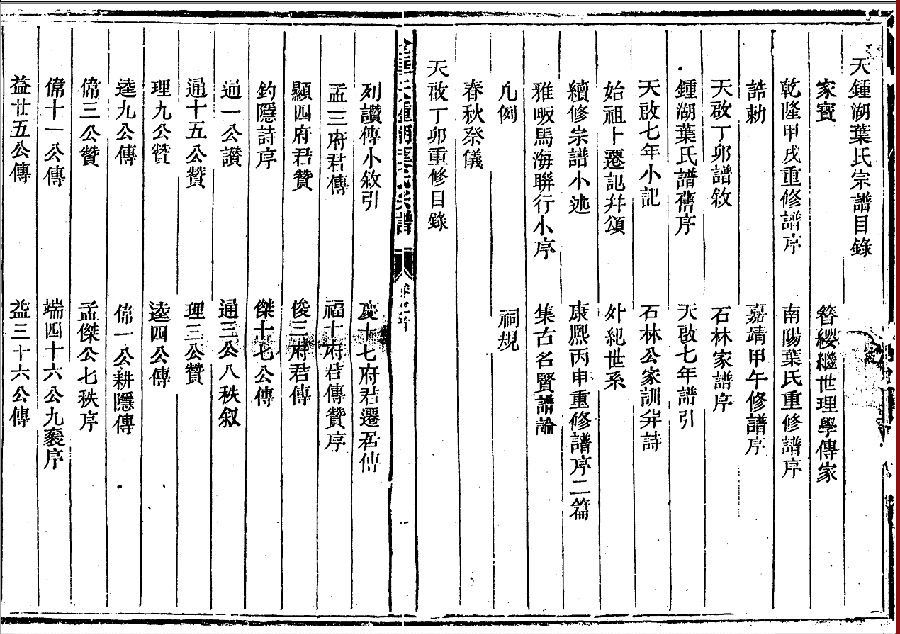 天鍾湖葉氏宗譜目錄
家寶 簪纓繼世理學傳家
乾隆甲戌重修譜序 南陽葉氏重修譜序
誥勅 嘉靖甲午修譜序
天啟丁卯譜敘 石林家譜序
鍾湖葉氏譜舊序 天啟七年譜引
天啟七年小記 石林公家訓并詩
始祖卜遷記并頌 外紀世系
續修宗譜小述 康熙丙申重修譜序二篇
雅畈馬海聯行小序 集古名賢譜論
凡例 祠規
春秋祭儀
天啟丁卯重修目錄
列讚傳小敘引 慶十七府君遷居傳
孟二三府君傳 福十府君傳贊序
顯四府君贊 俊三府君傳
釣隱詩序 傑十七公傳
通一公讚 通三公八秩敘
通十五公贊 理三公贊
理九公贊 逵四公傳
逵九公傳 備一公耕隱傳
備三公贊 孟傑公七秩序
備十一公傳 端四十六公九袠序
益廿五公傳 益三十六公傳